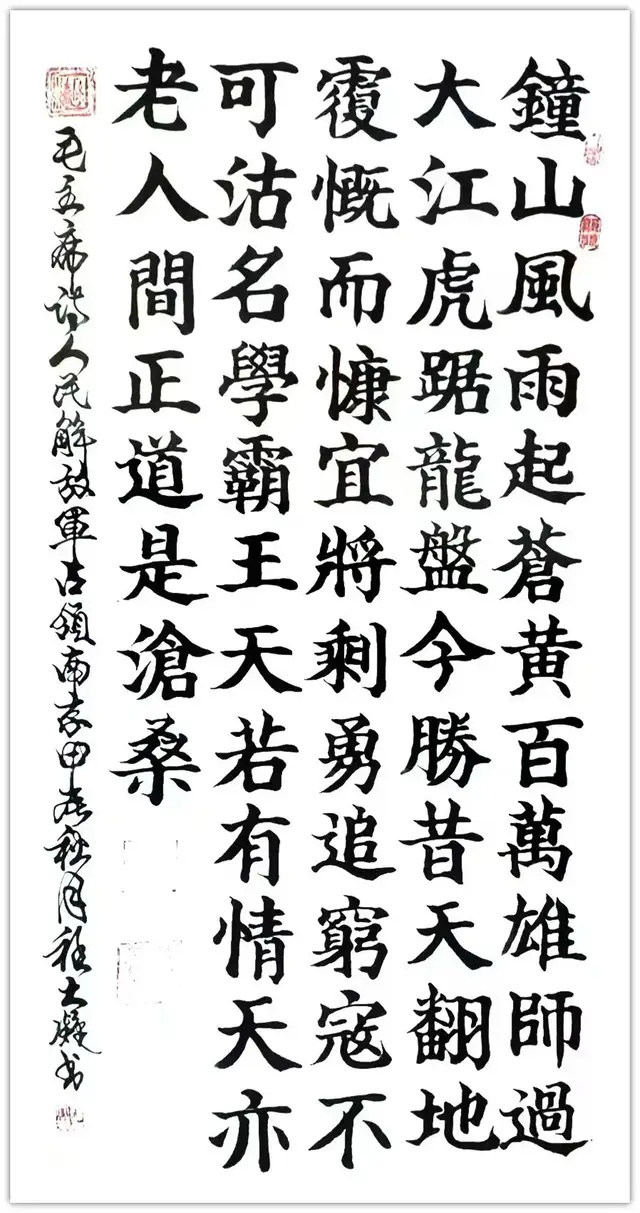 鐘山風雨起蒼黃百萬雄師過
大江虎踞龍盤今勝昔天翻地
覆慨而慷宜將剩勇追窮寇不
可沽名學霸王天若有情天亦
老人間正道是滄桑
毛主席詩人民解放軍占領南京甲午秋月程大凝书